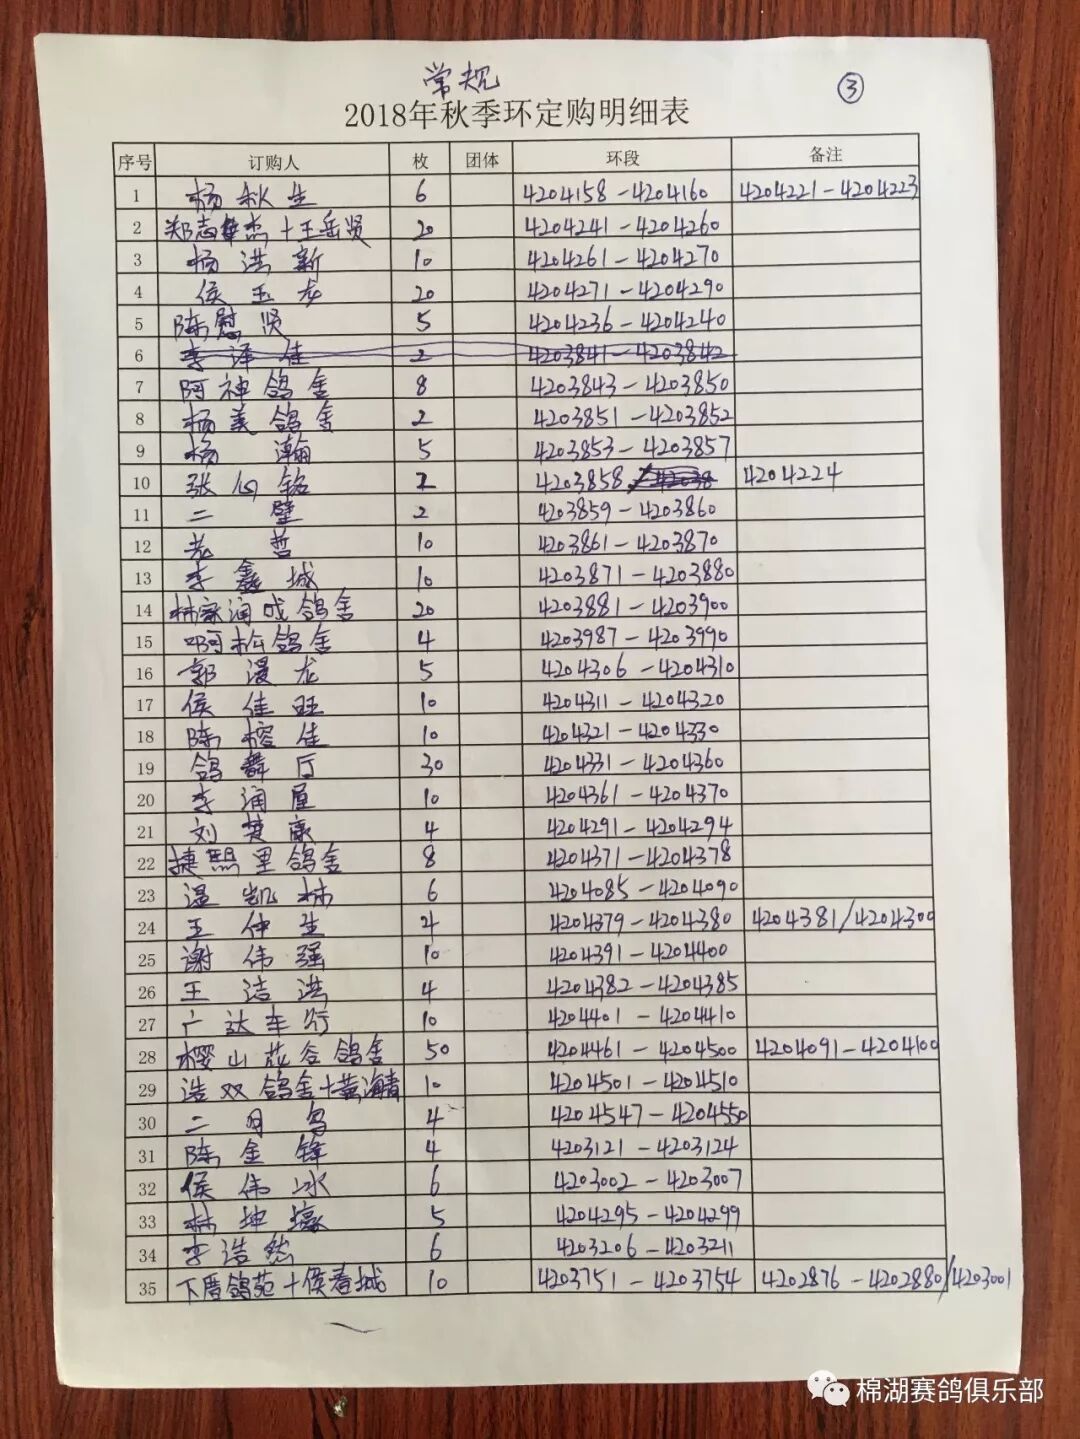 常规
③
2018年秋季环定购明细表
序号 订购人 枚 团体 环段 备注
1 杨秋生 6 4204158-4204160 4204221-4204223
2 郑志杰+王岳贤 20 4204241-4204260
3 杨洪新 10 4204261-4204270
4 侯玉龙 20 4204271-4204290
5 陈慰贤 5 4204236-4204240
6 李泽佳 2 4203841-4203842
7 阿神鸽舍 8 4203843-4203850
8 杨美鸽舍 2 4203851-4203852
9 杨瀚 5 4203853-4203857
10 张铭 2 4203858 4204224
11 二壁 2 4203859-4203860
12 哲 10 4203861-4203870
13 李鑫城 10 4203871-4203880
14 林家润成鸽舍 20 4203881-4203900
15 啊松鸽舍 4 4203987-4203990
16 郭漫龙 5 4204306-4204310
17 侯佳旺 10 4204311-4204320
18 陈榕佳 10 4204321-4204330
19 鸽舞厅 30 4204331-4204360
20 李润屋 10 4204361-4204370
21 刘楚康 4 4204291-4204294
22 捷熙里鸽舍 8 4204371-4204378
23 温凯林 6 4204085-4204090
24 王仲生 4 4204379-4204380 4204381/4204300
25 谢伟强 10 4204391-4204400
26 王洁洪 4 4204382-4204385
27 广达车行 10 4204401-4204410
28 樱山花谷鸽舍 50 4204461-4204500 4204091-4204100
29 浩双鸽舍+黄海青 10 4204501-4204510
30 二月鸟 4 4204547-4204550
31 陈金锋 4 4203121-4203124
32 侯伟冰 6 4203002-4203007
33 林坤壕 5 4204295-4204299
34 李浩然 6 4203206-4203211
35 下厝鸽苑+侯春城 10 4203751-4203754 4202876-4202880/4203001
棉湖赛鸽俱乐部